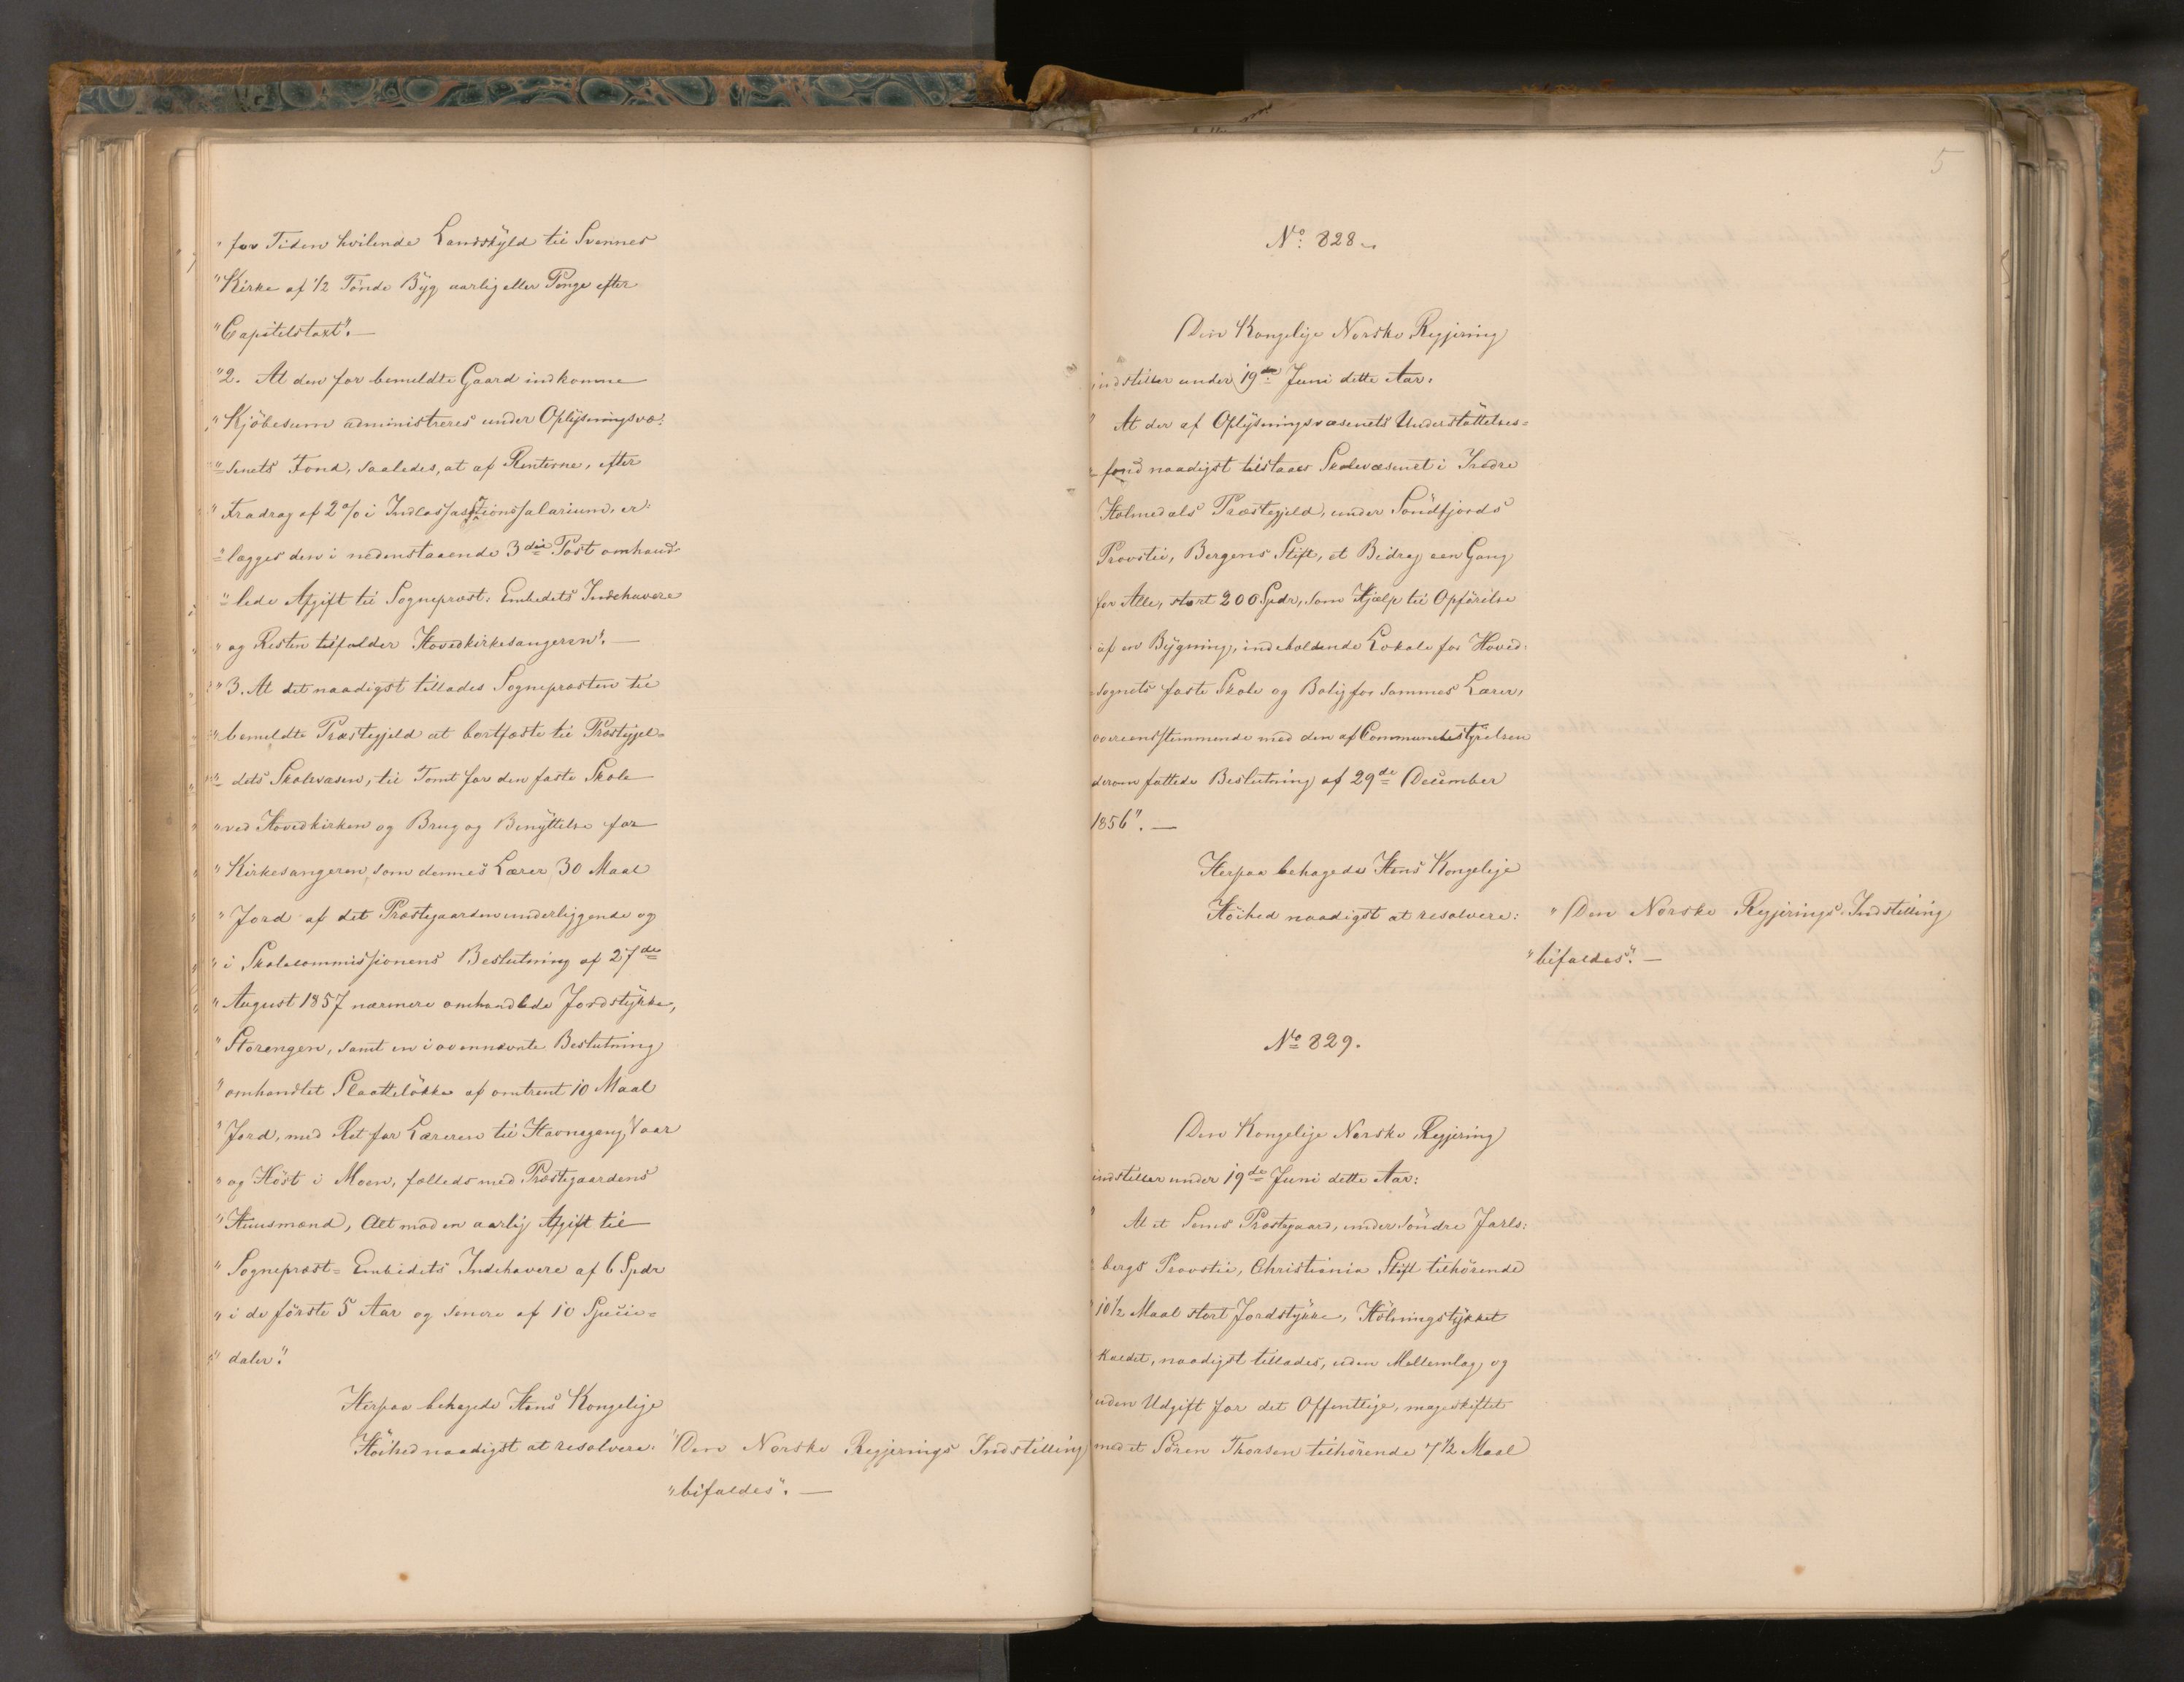 " for Tiden hvilende Landskyld til Svennes
" Kirke af 1/2 Tønde Byg aarlig eller Penge efter
" Capitelstaxt". —
" 2. At den for bemeldte Gaard indkomne
" Kjöbesum administreres under Oplysningsvæ-
" senets Fond, saaledes, at af Renterne, efter
" Fradrag af 2 % i Indcassationssalarium, er-
" lægges den i nedenstaaende 3die Post omhand-
" lede Afgift til Sognepræst-Embedets Indehavere
" og Resten tilfalder Hovedkirkesangeren". —
" 3. At det naadigst tillades Sognepræsten til
" bemeldte Præstegjeld at bortfæste til Præstegjel-
" dets Skolevæsen, til Tomt for den faste Skole
" ved Hovedkirken og Brug og Benyttelse for
" Kirkesangeren, som dennes Lærer, 30 Maal
" Jord af det Præstegaarden underliggende og
" i Skolecommissionens Beslutning af 27de
" August 1857 nærmere omhandlede Jordstykke,
" Storengen, samt en i ovennævnte Beslutning
" omhandlet Slaatteløkke af omtrent 10 Maal
" Jord, med Ret for Læreren til Havnegang Vaar
" og Höst i Moen, fælleds med Præstegaardens
" Huusmænd, Alt mod en aarlig Afgift til
" Sognepræst-Embedets Indehavere af 6 Spdr
" i de förste 5 Aar og senere af 10 Specie-
" daler."
Herpaa behagede Hans Kongelige
Höihed naadigst at resolvere: "Den Norske Regjerings Indstilling
"bifaldes". —
5
No 828.
Den Kongelige Norske Regjering
indstiller under 19de Juni dette Aar:
" At der af Oplysningsvæsenets Understöttelses-
fond naadigst tilstaaes Skolevæsenet i Indre
Holmedals Præstegjeld, under Söndfjords
Provsti, Bergens Stift, et Bidrag een Gang
for Alle, stort 200 Spdr, som Hjælp til Opförelse
af en Bygning, indeholdende Lokale for Hoved-
sognets faste Skole og Bolig for sammes Lærer,
overeensstemmende med den af Communebestyrelsen
derom fattede Beslutning af 29de December
1856". —
Herpaa behagede Hans Kongelige
Höihed naadigst at resolvere: "Den Norske Regjerings Indstilling
"bifaldes". —
No 829.
Den Kongelige Norske Regjering
indstiller under 19de Juni dette Aar:
" At et Sems Præstegaard, under Söndre Jarls-
bergs Provsti, Christiania Stift tilhörende
10 1/2 Maal stort Jordstykke, Hölmingstykket
kaldet, naadigst tillades, uden Mellemlag og
uden Udgift for det Offentlige, mageskiftet
med et Sören Thorsen tilhörende 7 1/2 Maal